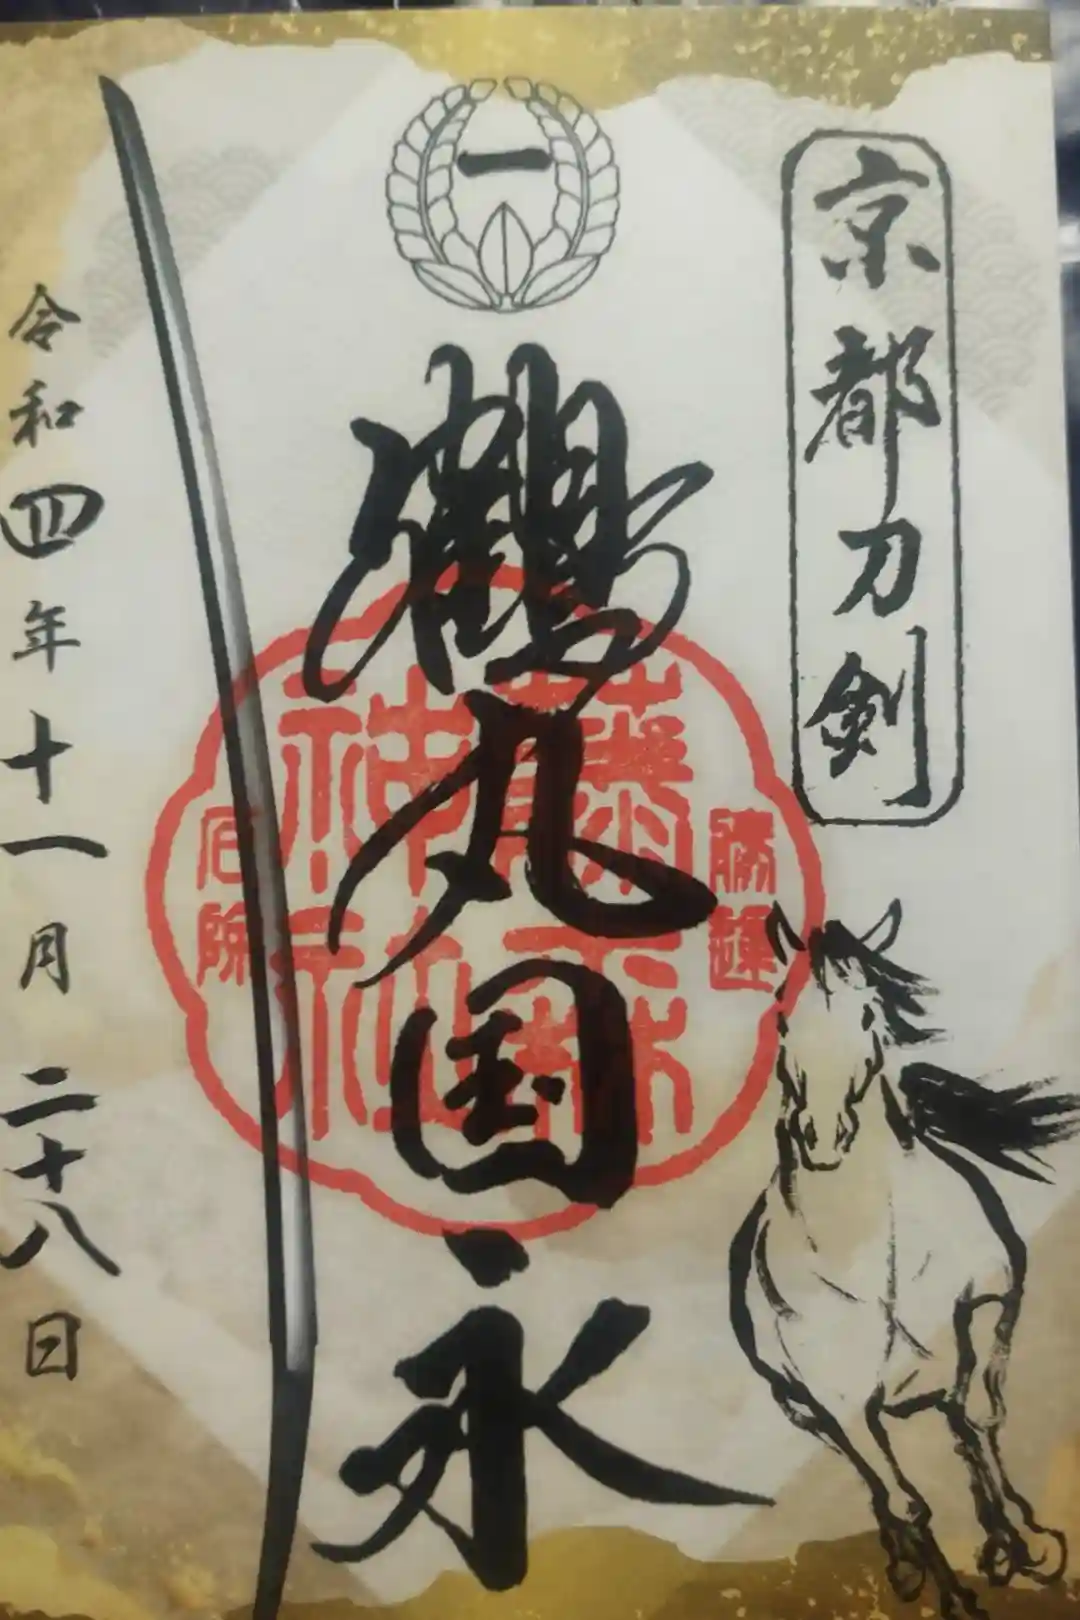 京都刀剣
一
鶴丸国永
藤森
神社
勝運
令和四年十一月二十八日